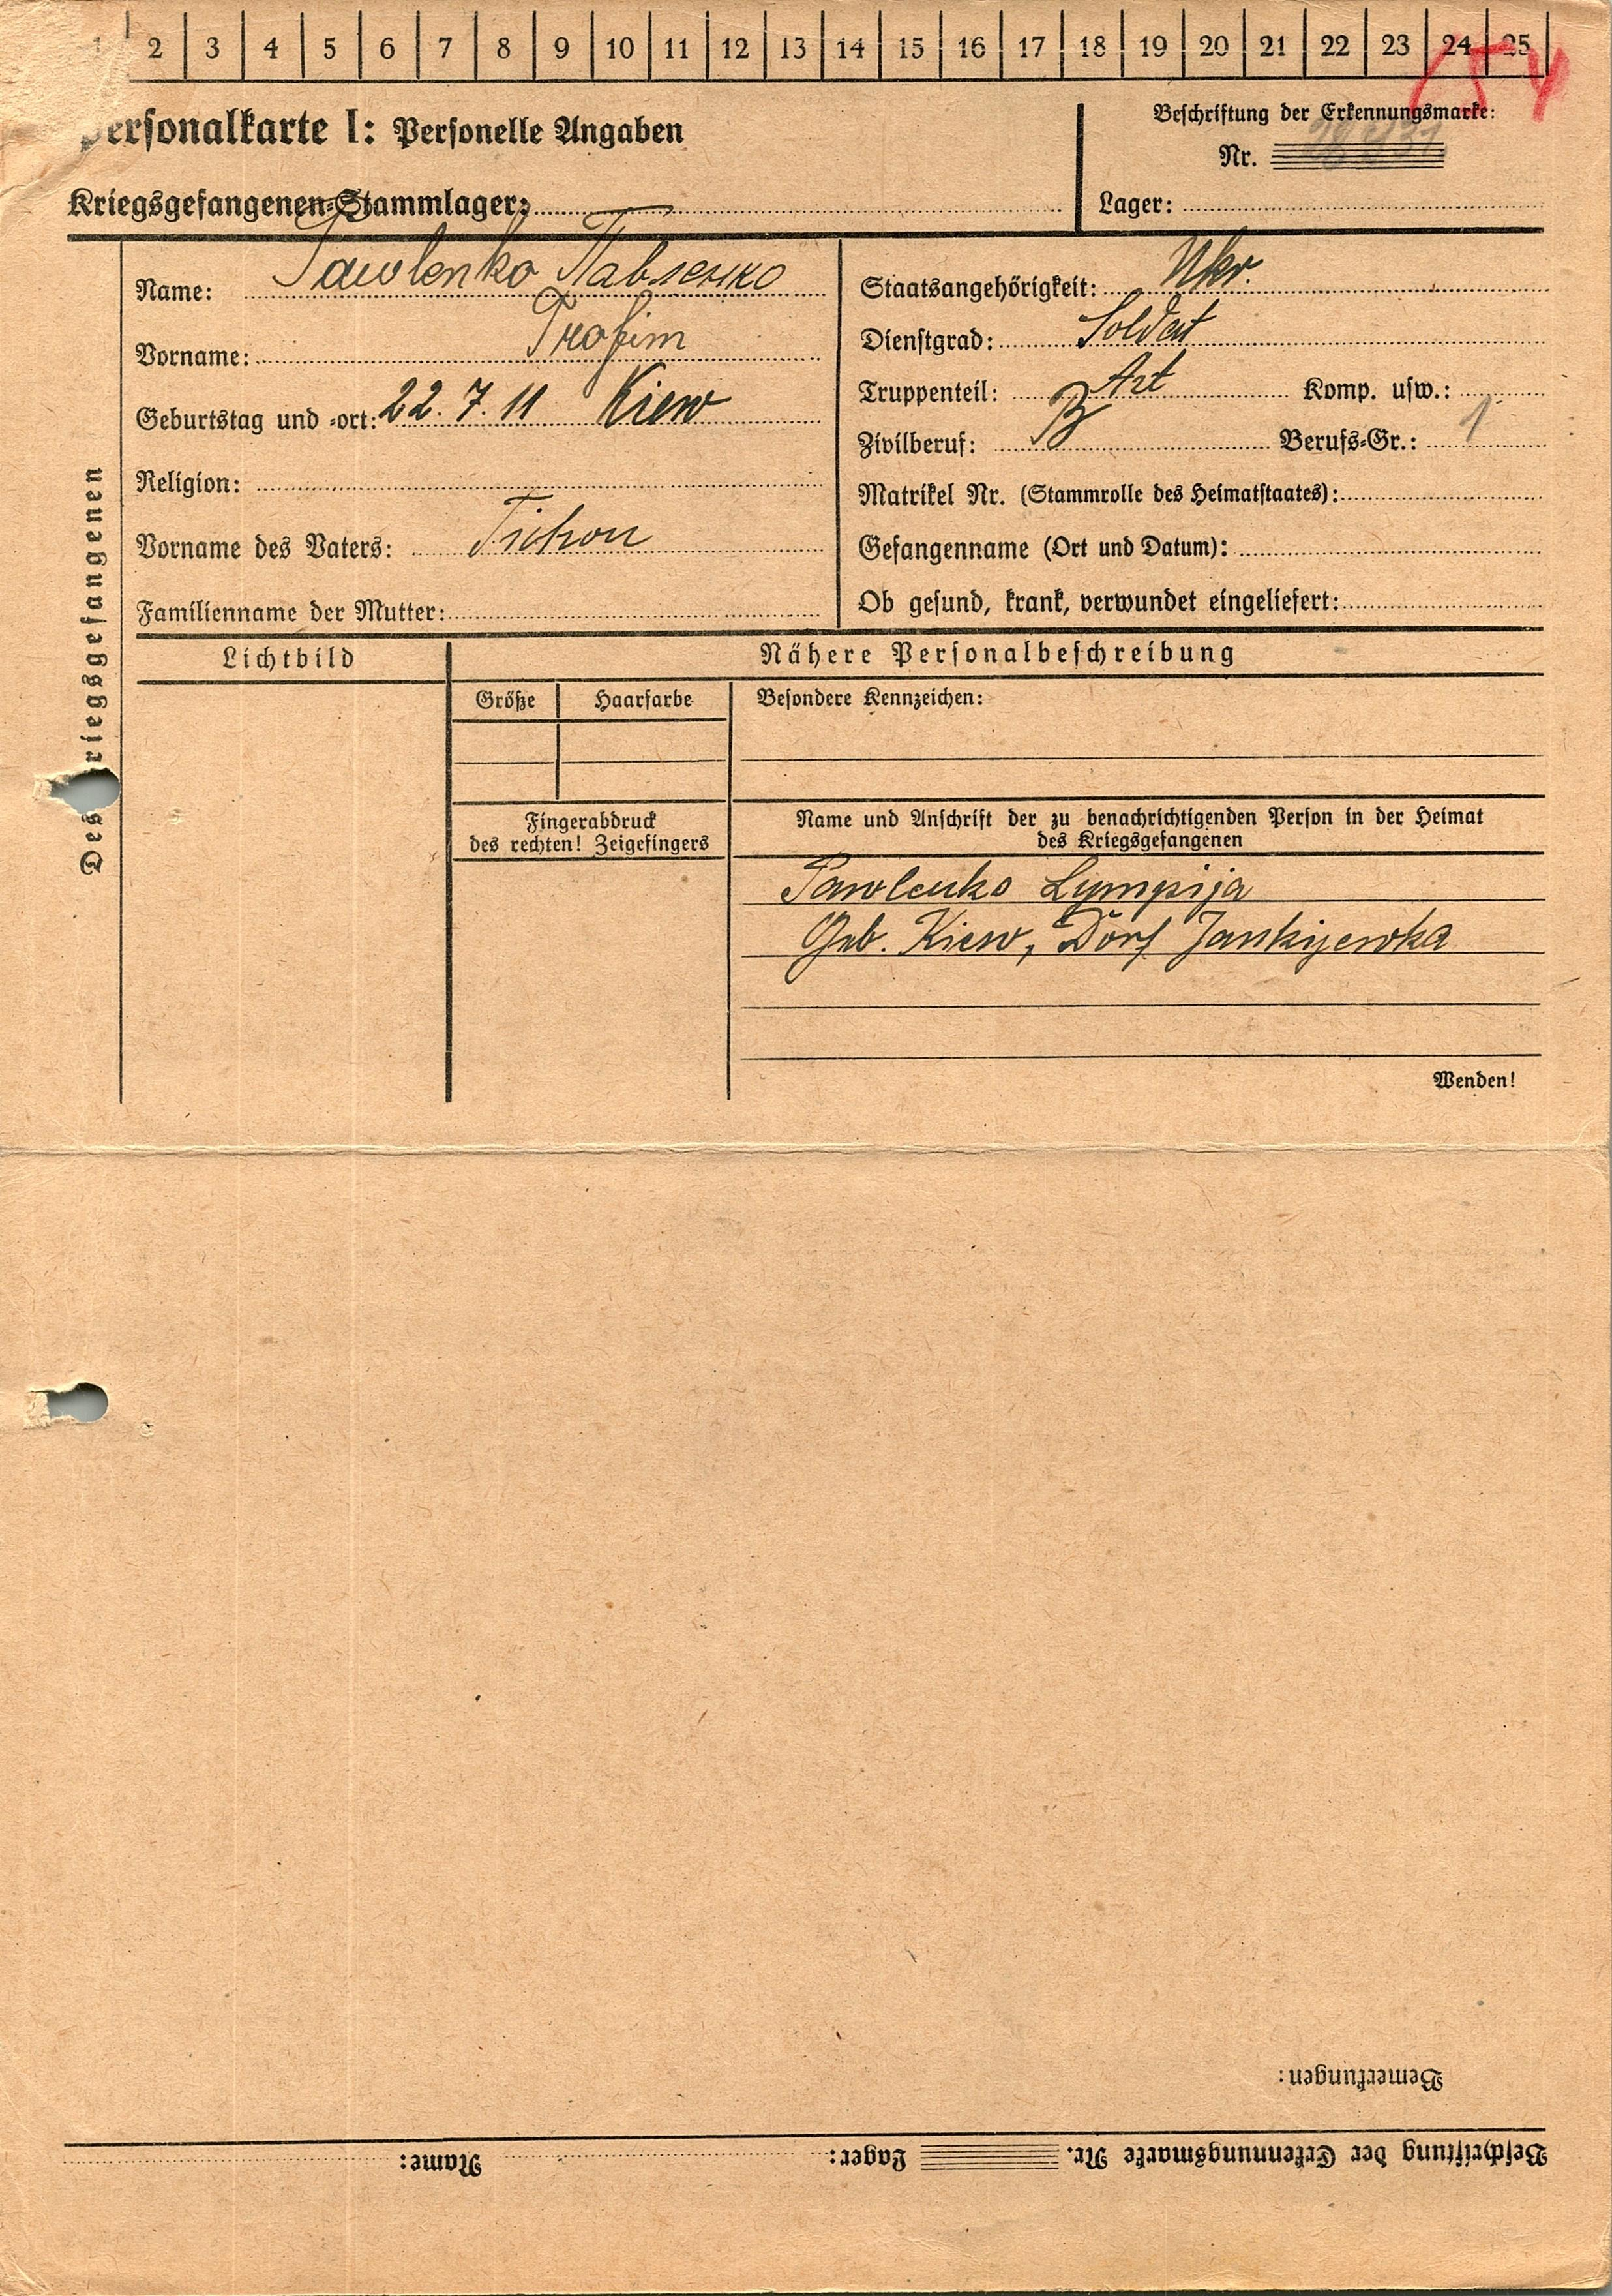 2 3 4 5 6 7 8 9 10 11 12 13 14 15 16 17 18 19 20 21 22 23 24 25
Personalkarte I: Personelle Angaben
Beschriftung der Erkennungsmarke:
Nr.
Kriegsgefangenen-Stammlager:
Lager:
Des Kriegsgefangenen
Name: Pawlenko Павленко
Vorname: Trofim
Geburtstag und -ort: 22.7.11 Kiew
Religion:
Vorname des Vaters: Tichon
Familienname der Mutter:
Staatsangehörigkeit: Ukr.
Dienstgrad: Soldat
Truppenteil: Art Komp. usw.:
Zivilberuf: B Berufs-Gr.: 1
Matrikel Nr. (Stammrolle des Heimatstaates):
Gefangenname (Ort und Datum):
Ob gesund, krank, verwundet eingeliefert:
Lichtbild
Nähere Personalbeschreibung
Größe Haarfarbe Besondere Kennzeichen:
Fingerabdruck
des rechten! Zeigefingers
Name und Anschrift der zu benachrichtigenden Person in der Heimat
des Kriegsgefangenen
Pawlenko Lympija
Geb. Kiew, Dorf Jankijewka
Wenden!
Bemerkungen:
Beschriftung der Erkennungsmarke Nr. Lager: Name: